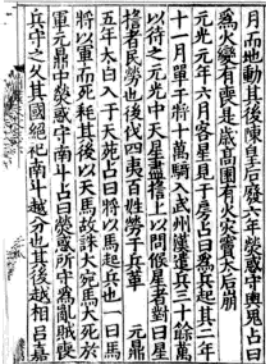 月而地動其後陳皇后廢六年熒惑守輿鬼占曰
爲火變有喪是歲高園有火災竇太后崩
元光元年六月客星見于房占曰爲兵起其二年
十一月單于將十萬騎入武州漢遣兵三十餘萬
以待之元光中天星盡搖上以問候星者對曰星
搖者民勞也後伐四夷百姓勞于兵革 元鼎
五年太白入于天苑占曰將以馬起兵也一曰馬
將以軍而死耗其後以天馬故誅大宛馬大死於
軍元鼎中熒惑守南斗占曰熒惑所守爲亂賊喪
兵守之久其國絕祀南斗越分也其後越相呂嘉